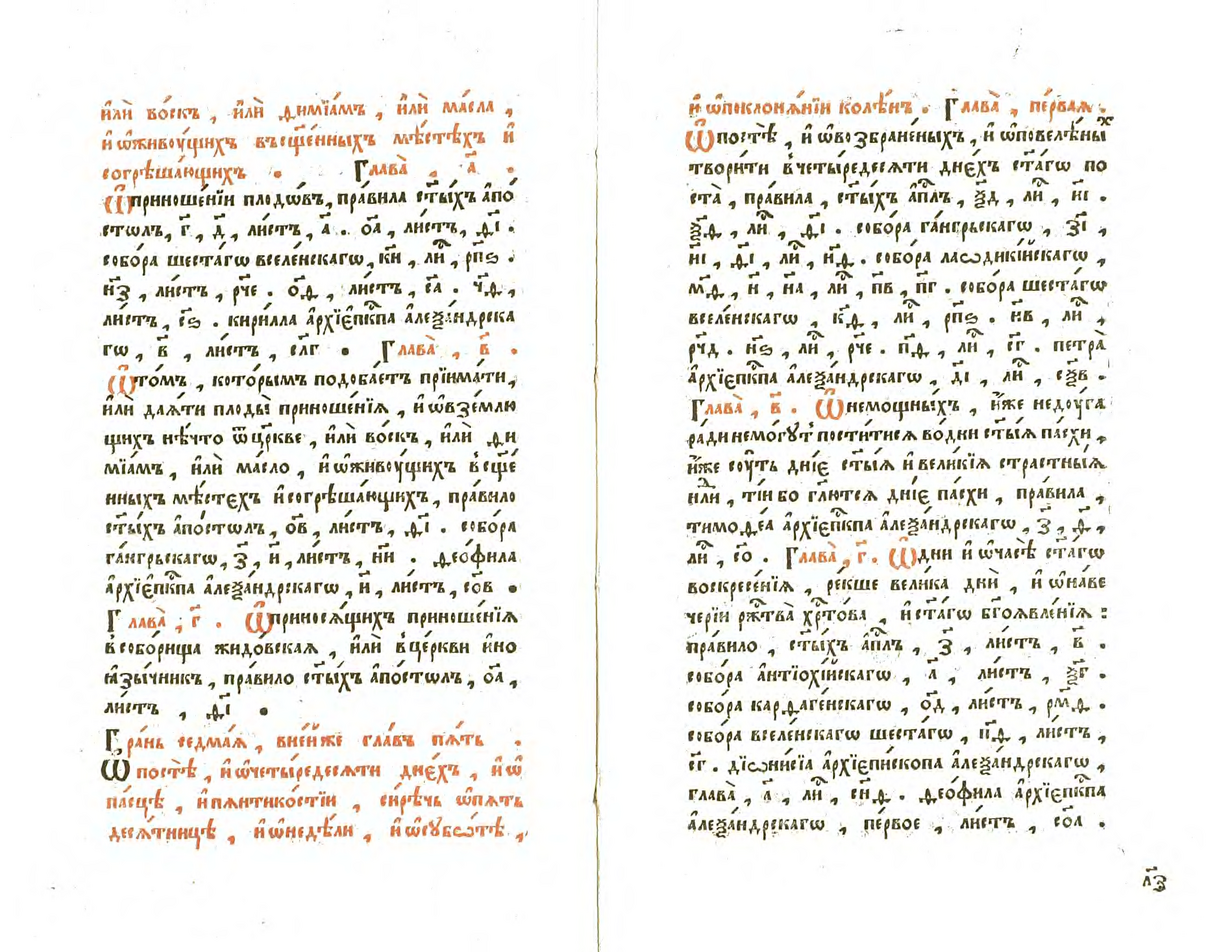 и҆лѝ во́скъ , и҆лѝ ѳимїа́мъ , и҆лѝ ма́сла ,
и҆ ѡ҆живꙋ́щихъ въсщ҃е́нныхъ мѣ́стѣхъ и҆
согрѣша́ющихъ . Глава̀ . а҃ .
Ѡ҆приноше́нїи плодѡ́въ, пра́вила ст҃ы́хъ а҆по́
столъ, г҃ , д҃ , ли́стъ , а҃ . о҃а , ли́стъ , ѳ҃і .
собо́ра шеста́гѡ вселе́нскагѡ, к҃и , ли́ , рп҃ѕ .
н҃з , ли́стъ , рч҃е . о҃ѳ , ли́стъ , с҃а . ч҃ѳ ,
ли́стъ , с҃ѕ . кири́лла а҆рхїє́пкпа а҆леѯа́ндрска
гѡ , в҃ , ли́стъ , сл҃г . Глава̀ , в҃ .
Ѡ҆то́мъ , кото́рымъ подоба́етъ прїима́ти ,
и҆лѝ дая́ти плоды̀ приноше́нїѧ , и҆ ѡ҆взе́млю
щихъ нѣ́что ѿ цр҃кве , и҆лѝ во́скъ , и҆лѝ ѳи
мїа́мъ , и҆лѝ ма́сло , и҆ ѡ҆живꙋ́щихъ всщ҃е́
нныхъ мѣ́стехъ и҆согрѣша́ющихъ , пра́вило
ст҃ы́хъ а҆по́столъ , о҃в , ли́стъ , ѳ҃і . собо́ра
га́нгрьскагѡ , з҃ , и҃ , ли́стъ , н҃и . ѳео́фила
а҆рхїє́пкпа а҆леѯа́ндрскагѡ , и҃ , ли́стъ , со҃в .
Глава̀ , г҃ . Ѡ҆принося́щихъ приноше́нїѧ
всобо́рища жидо́вская , и҆лѝ вце́ркви и҆но
ꙗ҆зы́чникъ , пра́вило ст҃ы́хъ а҆по́столъ , о҃а ,
ли́стъ , ѳ҃і .
Гра́нь седма́ѧ , вне́йже гла́въ пѧ́ть .
Ѡ҆ по́стѣ , и҆ ѡ҆четы́редесѧти дне́хъ , и҆ ѡ҆
па́сцѣ , и҆пѧнтико́стїи , си́рѣчь ѡ҆пѧть
десѧ́тницѣ , и҆ ѡ҆недѣ́ли , и҆ ѡ҆сꙋбѡ́тѣ ,
и҆ ѡ҆поклонѧ́нїи колѣ́нъ . Глава̀ , пе́рваѧ .
Ѡ҆по́стѣ , и҆ ѡ҆возбране́ныхъ , и҆ ѡ҆повелѣ́ныⷯ
твори́ти вчеты́редесѧти дне́хъ ст҃а́гѡ по
ста̀ , пра́вила , ст҃ы́хъ а҆пл҃ъ , ѯ҃д , ли́ , к҃і .
ѯ҃ѳ , ли́ , ѳ҃і . собо́ра га́нгрьскагѡ , з҃і ,
и҃і , ѳ҃і , ли́ , н҃ѳ . собо́ра лаѡдикі́йскагѡ ,
м҃ѳ , н҃ , н҃а , ли́ , п҃в , п҃г . собо́ра шеста́гѡ
вселе́нскагѡ , к҃ѳ , ли́ , рп҃ѕ . н҃в , ли́ ,
рч҃д . н҃ѕ , ли́ , рч҃е . п҃ѳ , ли́ , с҃г . петра̀
а҆рхїє́пкпа а҆леѯа́ндрскагѡ , д҃і , ли́ , сѯ҃в .
Глава̀ , в҃ . Ѡ҆немощны́хъ , и҆́же недꙋ́га
ра́ди немо́гꙋтъ пости́тисѧ во́дни ст҃ы́ѧ па́схи ,
и҆́же сꙋ́ть дні́є ст҃ы́ѧ и҆вели́кїѧ стра́стныѧ
нⷣли , ті́и бо гл҃ютсѧ дні́є па́схи , пра́вила ,
тимоѳе́а а҆рхїє́пкпа а҆леѯа́ндрскагѡ , з҃ , ѳ҃ ,
ли́ , с҃о . Глава̀ , г҃ . Ѡ҆днѝ и҆ ѡ҆ча́сѣ ст҃а́гѡ
воскресе́нїѧ , ре́кше вели́ка днѝ , и҆ ѡ҆на́ве
че́рїи рж҃тва̀ хр҃то́ва , и҆ст҃а́гѡ бг҃оявле́нїѧ :
пра́вило , ст҃ы́хъ а҆пл҃ъ , з҃ , ли́стъ , в҃ .
собо́ра а҆нтїохі́йскагѡ , а҃ , ли́стъ , ѯ҃г .
собо́ра карѳаге́нскагѡ , о҃д , ли́стъ , рм҃ѳ .
собо́ра вселе́нскагѡ шеста́гѡ , п҃ѳ , ли́стъ ,
с҃г . дїѡни́сїа а҆рхїєпи́скопа а҆леѯа́ндрскагѡ ,
глава̀ , а҃ , ли́ , сн҃ѳ . ѳео́фила а҆рхїє́пкпа
а҆леѯа́ндрскагѡ , пе́рвое , ли́стъ , со҃а .
л҃з